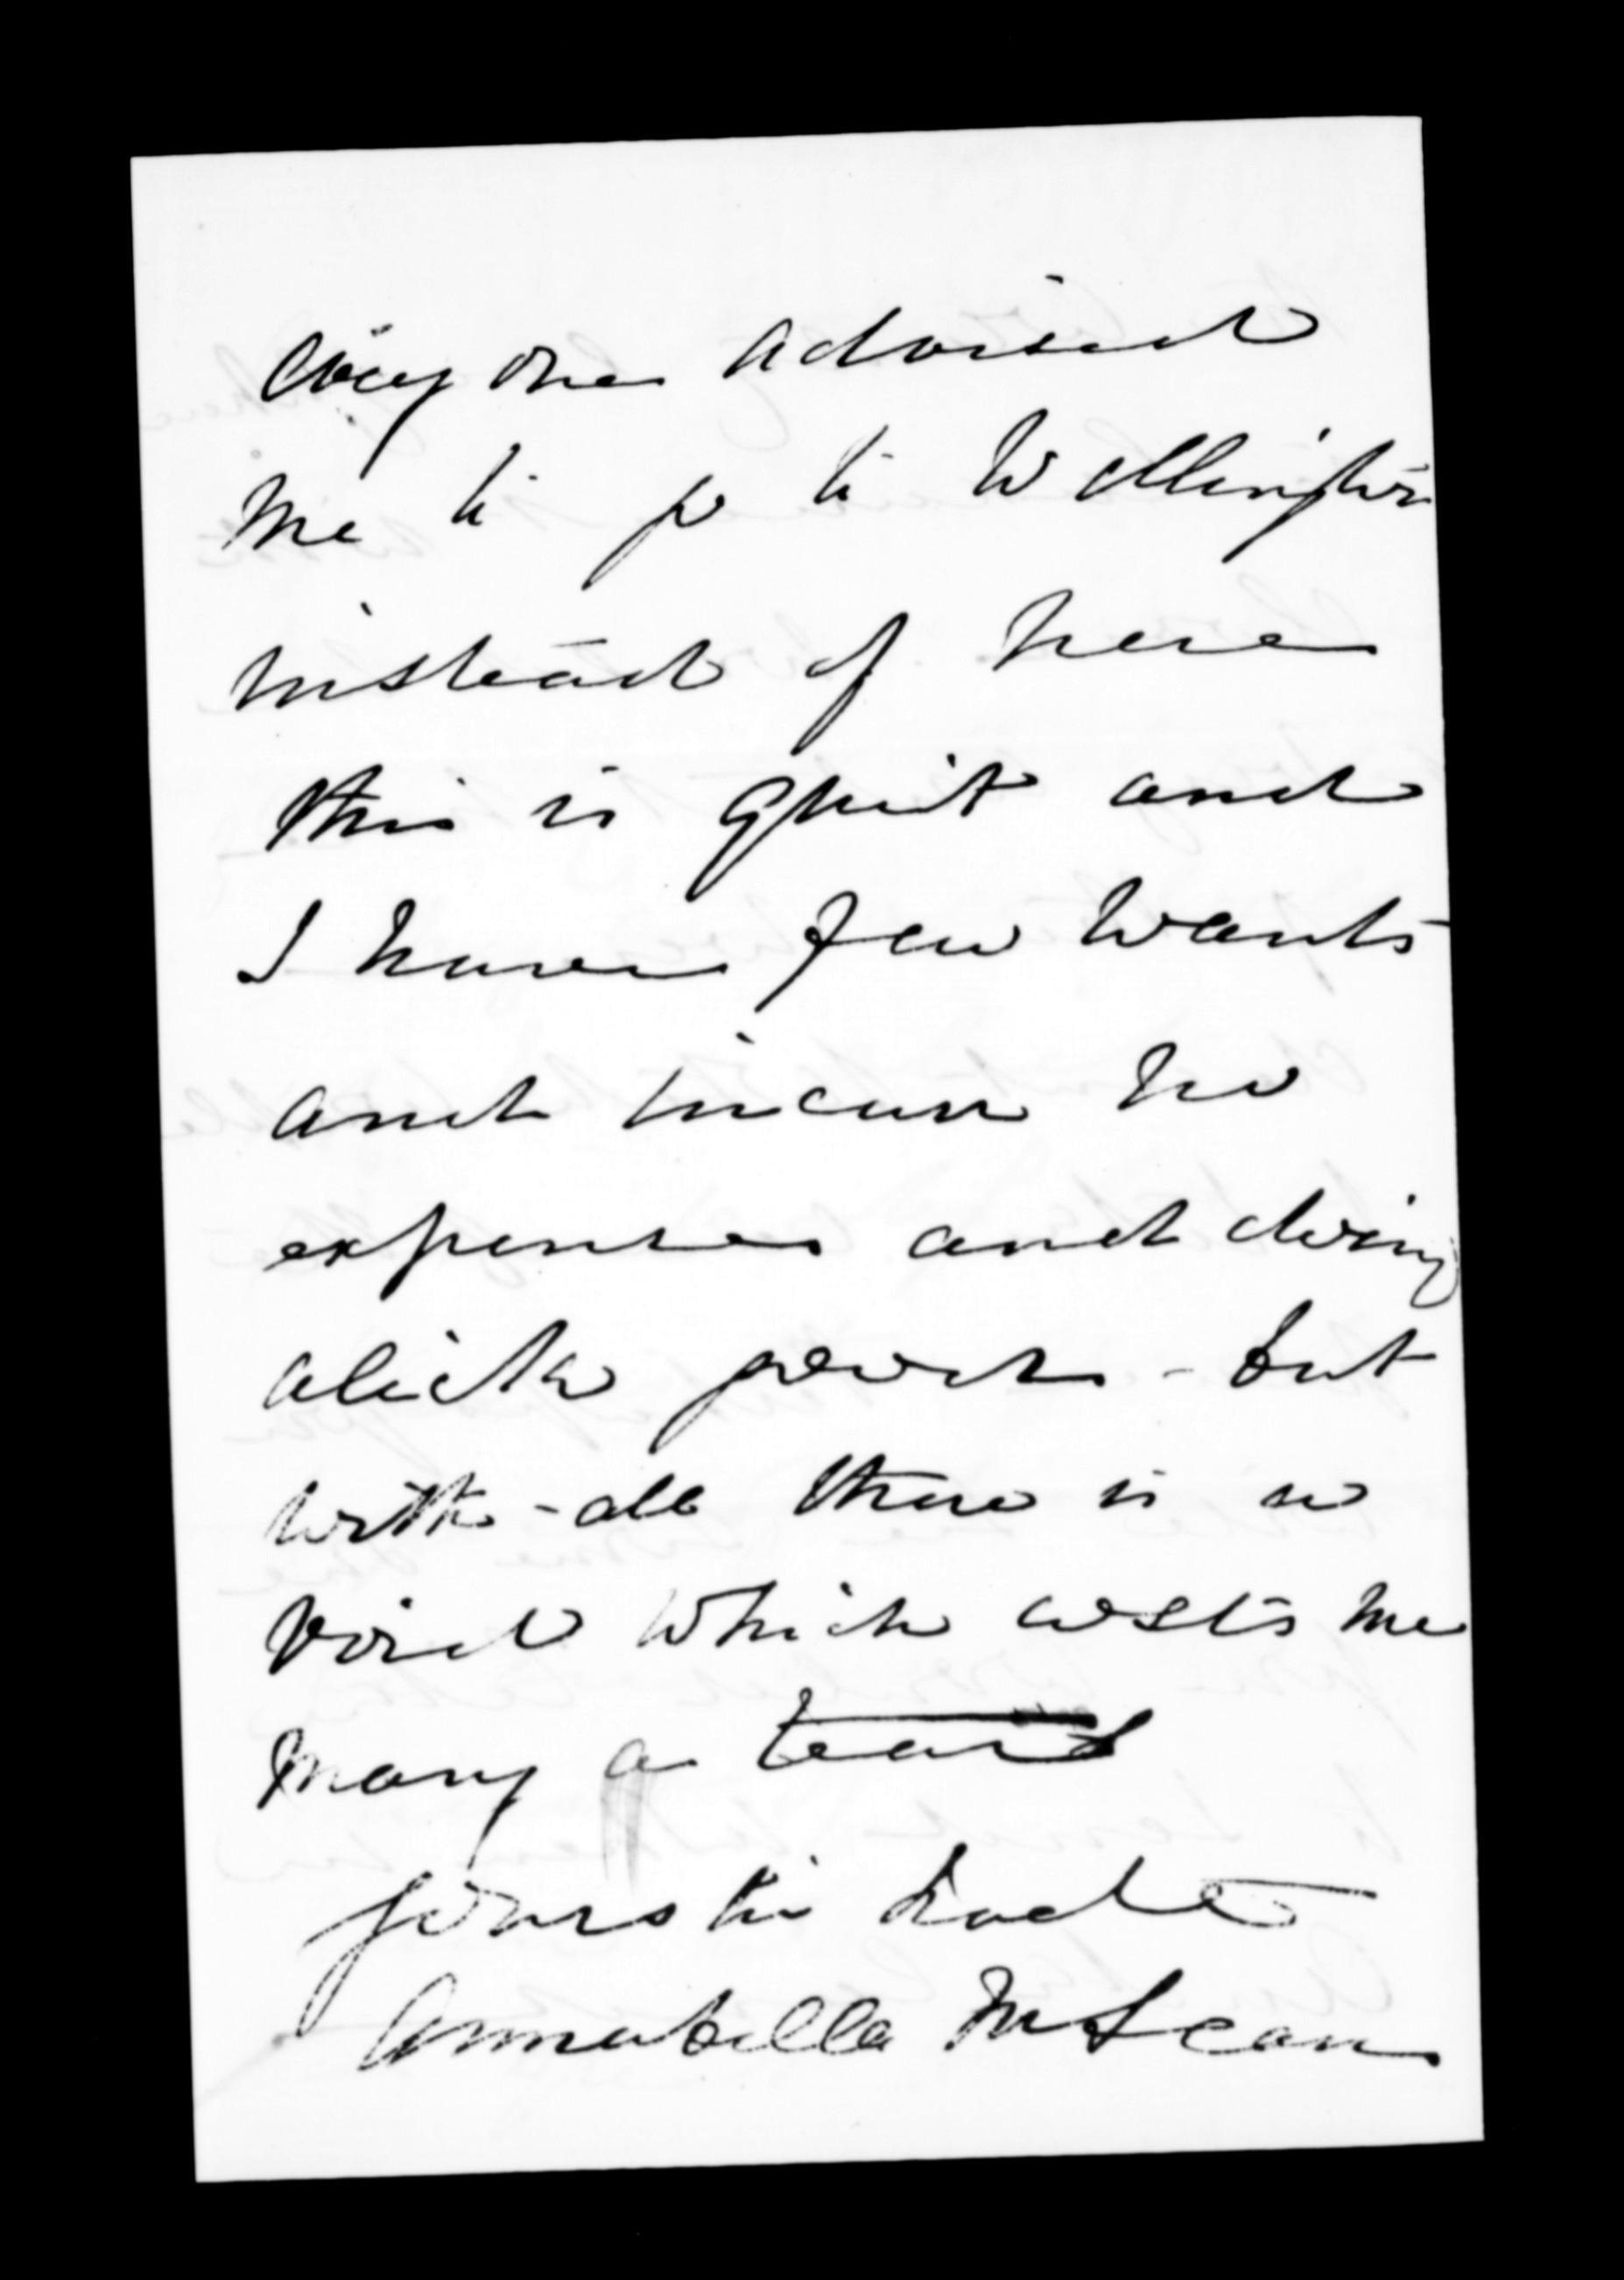 Every one advised
me to go to Wellington
instead of here
this is quiet and
I have few wants
and incur no
expenses and doing
a little good - but
with-all there is a
void which costs me
many a tear
yours till death
Annabella McLean